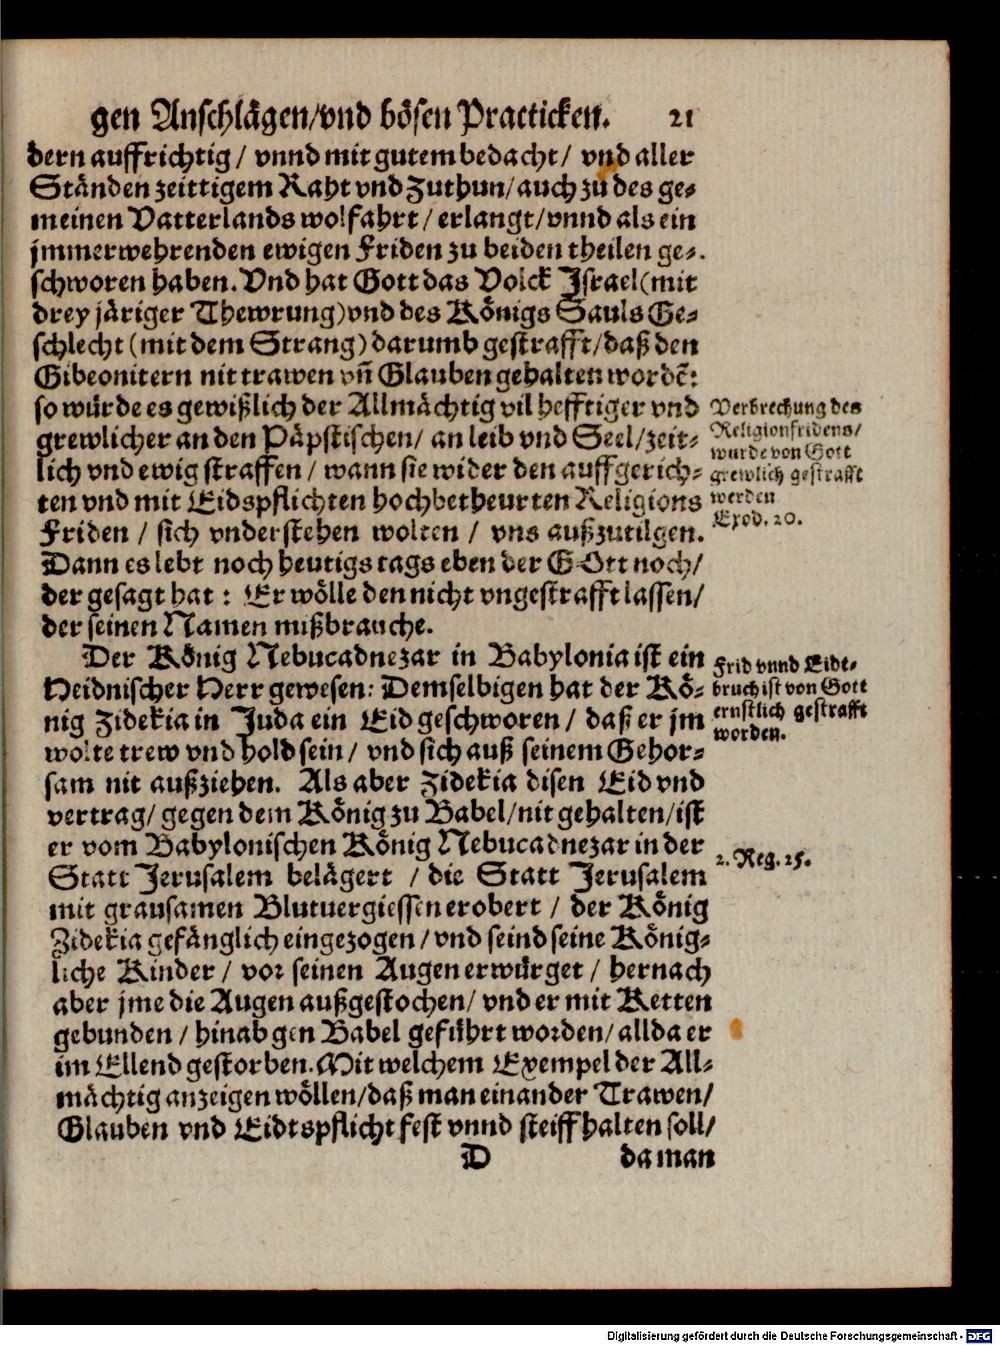 gen Anschlägen/vnd bösen Practicken. 21
dern auffrichtig / vnnd mit gutem bedacht / vnd aller
Ständen zeittigem Raht vnd Zuthun/auch zu des ge-
meinen Vatterlands wolfahrt / erlangt/vnnd als ein
jmmerwehrenden ewigen Friden zu beiden theilen ge-
schworen haben. Vnd hat Gott das Volck Israel(mit
drey järiger Thewrung)vnd des Königs Sauls Ge-
schlecht (mit dem Strang) darumb gestrafft/daß den
Gibeonitern nit trawen vñ Glauben gehalten wordẽ:
so würde es gewißlich der Allmächtig vil hefftiger vnd
grewlicher an den Päpstischen/ an leib vnd Seel/zeit-
lich vnd ewig straffen / wann sie wider den auffgerich-
ten vnd mit Eidspflichten hochbetheurten Religions
Friden / sich vnderstehen wolten / vns außzutilgen.
Dann es lebt noch heutigs tags eben der GOtt noch/
der gesagt hat : Er wölle den nicht vngestrafft lassen/
der seinen Namen mißbrauche.
Verbrechung des
Religionfridens/
wurde von Gott
grewlich gestrafft
werden
Exod. 20.
Der König Nebucadnezar in Babylonia ist ein
Heidnischer Herr gewesen: Demselbigen hat der Kö-
nig Zidekia in Juda ein Eid geschworen / daß er jm
wolte trew vnd hold sein / vnd sich auß seinem Gehor-
sam nit außziehen. Als aber Zidekia disen Eid vnd
vertrag/ gegen dem König zu Babel/nit gehalten/ist
er vom Babylonischen König Nebucadnezar in der
Statt Jerusalem belägert / die Statt Jerusalem
mit grausamen Blutuergiessen erobert / der König
Zidekia gefänglich eingezogen / vnd seind seine König-
liche Kinder / vor seinen Augen erwürget / hernach
aber jme die Augen außgestochen/ vnd er mit Ketten
gebunden / hinab gen Babel geführt worden/ allda er
im Ellend gestorben. Mit welchem Exempel der All-
mächtig anzeigen wöllen/daß man einander Trawen/
Glauben vnd Eidtspflicht fest vnnd steiff halten soll/
Frid vnnd Eidt-
bruch ist von Gott
ernstlich gestrafft
worden.
2. Reg. 25.
D da man
Digitalisierung gefördert durch die Deutsche Forschungsgemeinschaft - DFG